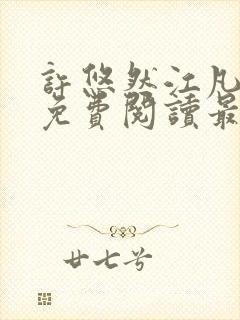 許悠然江凡
免費閱讀最
廿七兮